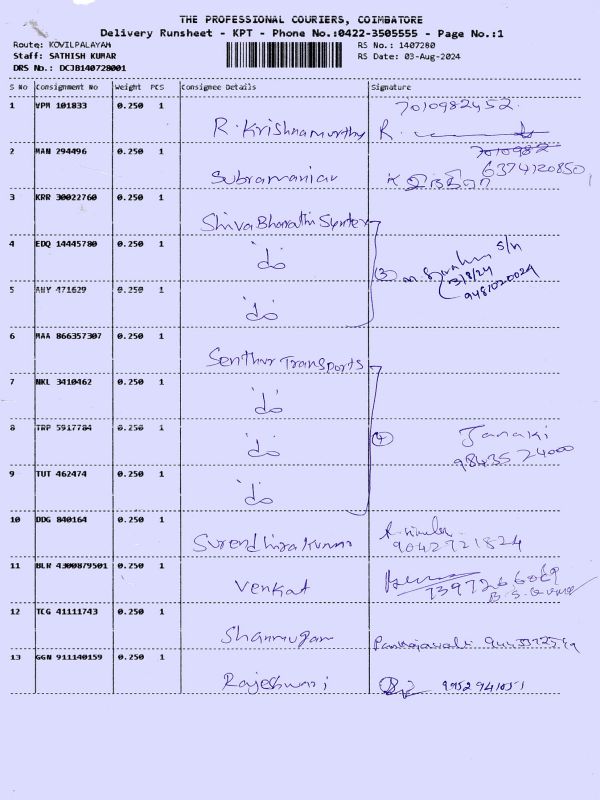 THE PROFESSIONAL COURIERS, COIMBATORE
Delivery Runsheet - KPT - Phone No.:0422-3505555 - Page No.:1
Route: KOVILPALAYAM
RS No.: 1407280
Staff: SATHISH KUMAR
RS Date: 03-Aug-2024
DRS No.: DCJB140728001
S No Consignment No Weight PCS Consignee Details Signature
1 VPM 101833 0.250 1 R. Krishnamurthy 7010982452. R.
2 MAN 294496 0.250 1 Subramanian 7010982 6374120850
3 KRR 30022760 0.250 1 Shiva Bharathi Syntex
4 EDQ 14445780 0.250 1 'do' (3) S/n
3/8/24
5 ANY 471629 0.250 1 'do'
6 MAA 866357307 0.250 1 Senthur Transports
7 NKL 3410462 0.250 1 'do'
8 TRP 5917784 0.250 1 'do' (4) Janaki
98435 24000
9 TUT 462474 0.250 1 'do'
10 DDG 840164 0.250 1 Surendhirakumar
9042721824
11 BLR 4300879501 0.250 1 Venkat
7397266069
12 TCG 41111743 0.250 1 Shanmugam
13 GGN 911140159 0.250 1 Rajeswari 9952941051